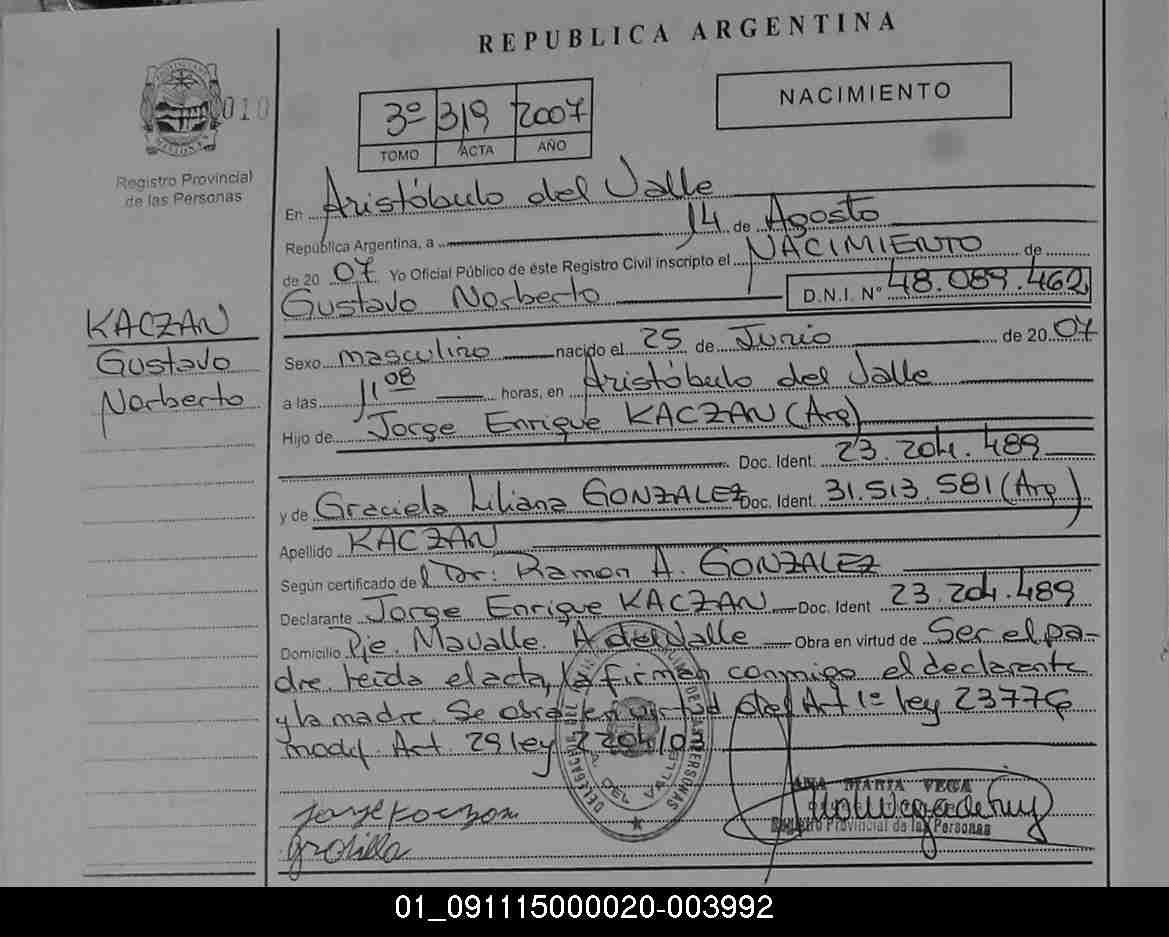 REPUBLICA ARGENTINA
010
MISIONES
Registro Provincial
de las Personas
3º 319 2007
TOMO ACTA AÑO
NACIMIENTO
En Aristóbulo del Valle
República Argentina, a 14 de Agosto
de 20 07 Yo Oficial Público de éste Registro Civil inscripto el NACIMIENTO de
Gustavo Norberto D.N.I. Nº 48.089.462
KACZAN
Gustavo
Norberto
Sexo masculino nacido el 25 de Junio de 20 07
a las 11 08 horas, en Aristóbulo del Valle
Hijo de Jorge Enrique KACZAN (Arg)
Doc. Ident. 23.204.489
y de Graciela Liliana GONZALEZ Doc. Ident. 31.513.581 (Arg)
Apellido KACZAN
Según certificado del Dr: Ramon A. GONZALEZ
Declarante Jorge Enrique KACZAN Doc. Ident 23.204.489
Domicilio Pje. Mavalle. A del Valle Obra en virtud de Ser el pa-
dre leida el acta, la firman conmigo el declarante
y la madre. Se obra en virtud del Art 1º ley 23776
modif. Art. 29 ley 2204/0
DELEGACION DEL PERSONAS
A. DEL VALLE
ANA MARIA VEGA
Registro Provincial de las Personas
Jorge Kaczan
01_091115000020-003992